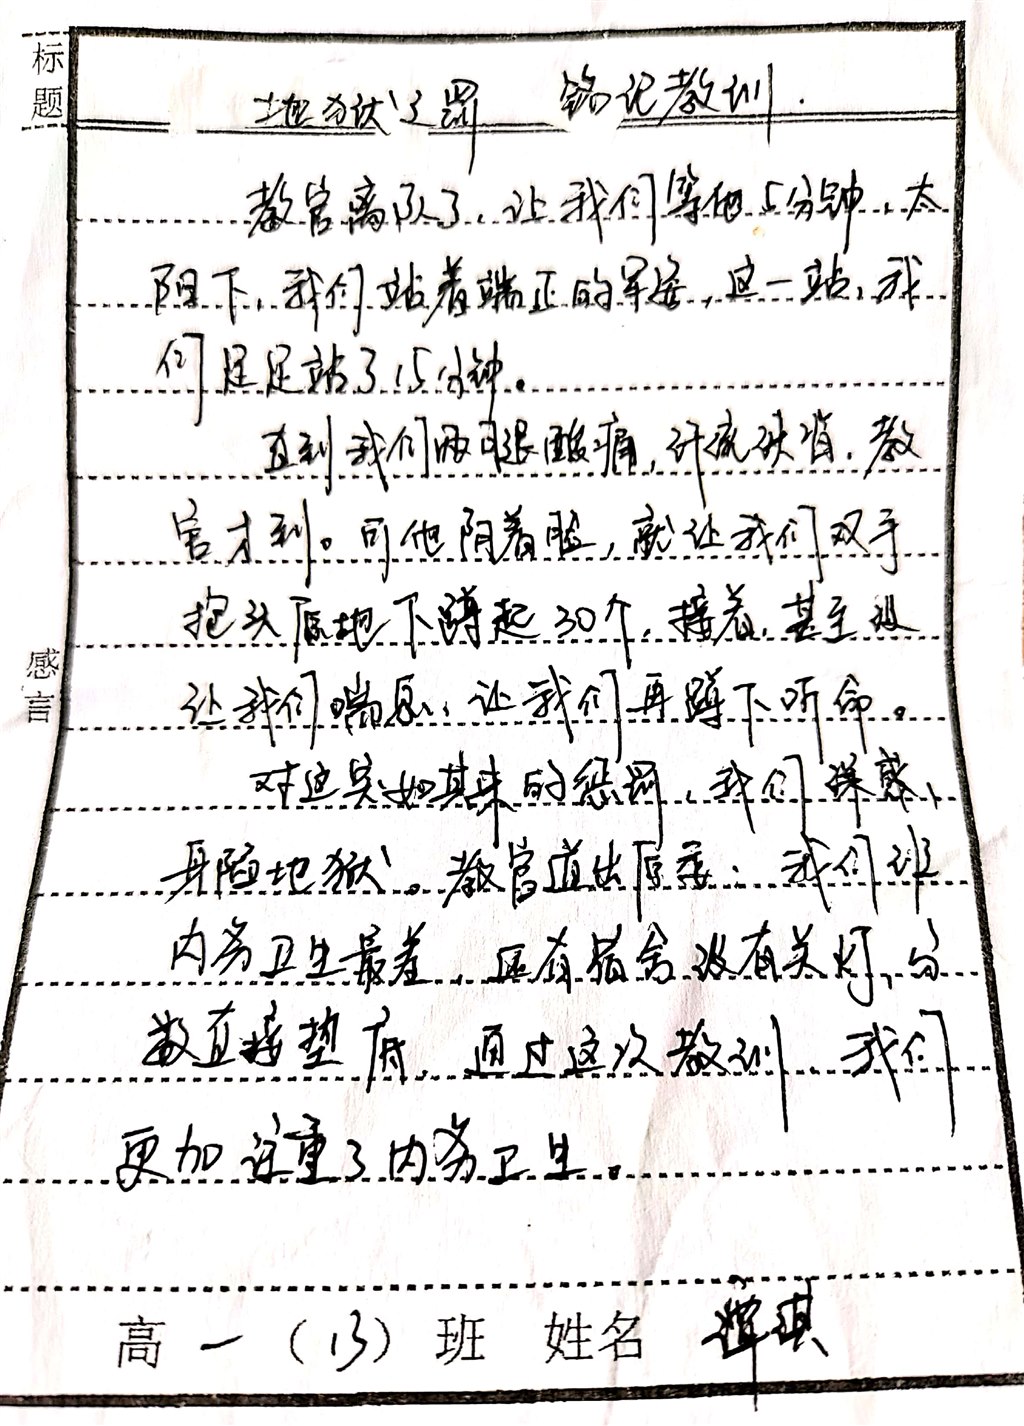 标题
地狱之罚 铭记教训.
教官离队了,让我们等他5分钟,太
阳下,我们站着端正的军姿,这一站,我
们足足站了15分钟。
直到我们两眼酸痛,汗流浃背,教
官才到。可他阴着脸,就让我们双手
抱头原地下蹲起30个,接着,甚至没
让我们喘息,让我们再蹲下听命。
对这突如其来的惩罚,我们深感、
身临地狱。教官道出原委:我们班
内务卫生最差,还有宿舍没有关灯,分
数直接垫底,通过这次教训,我们
更加注重了内务卫生。
感言
高一(13)班 姓名 琪